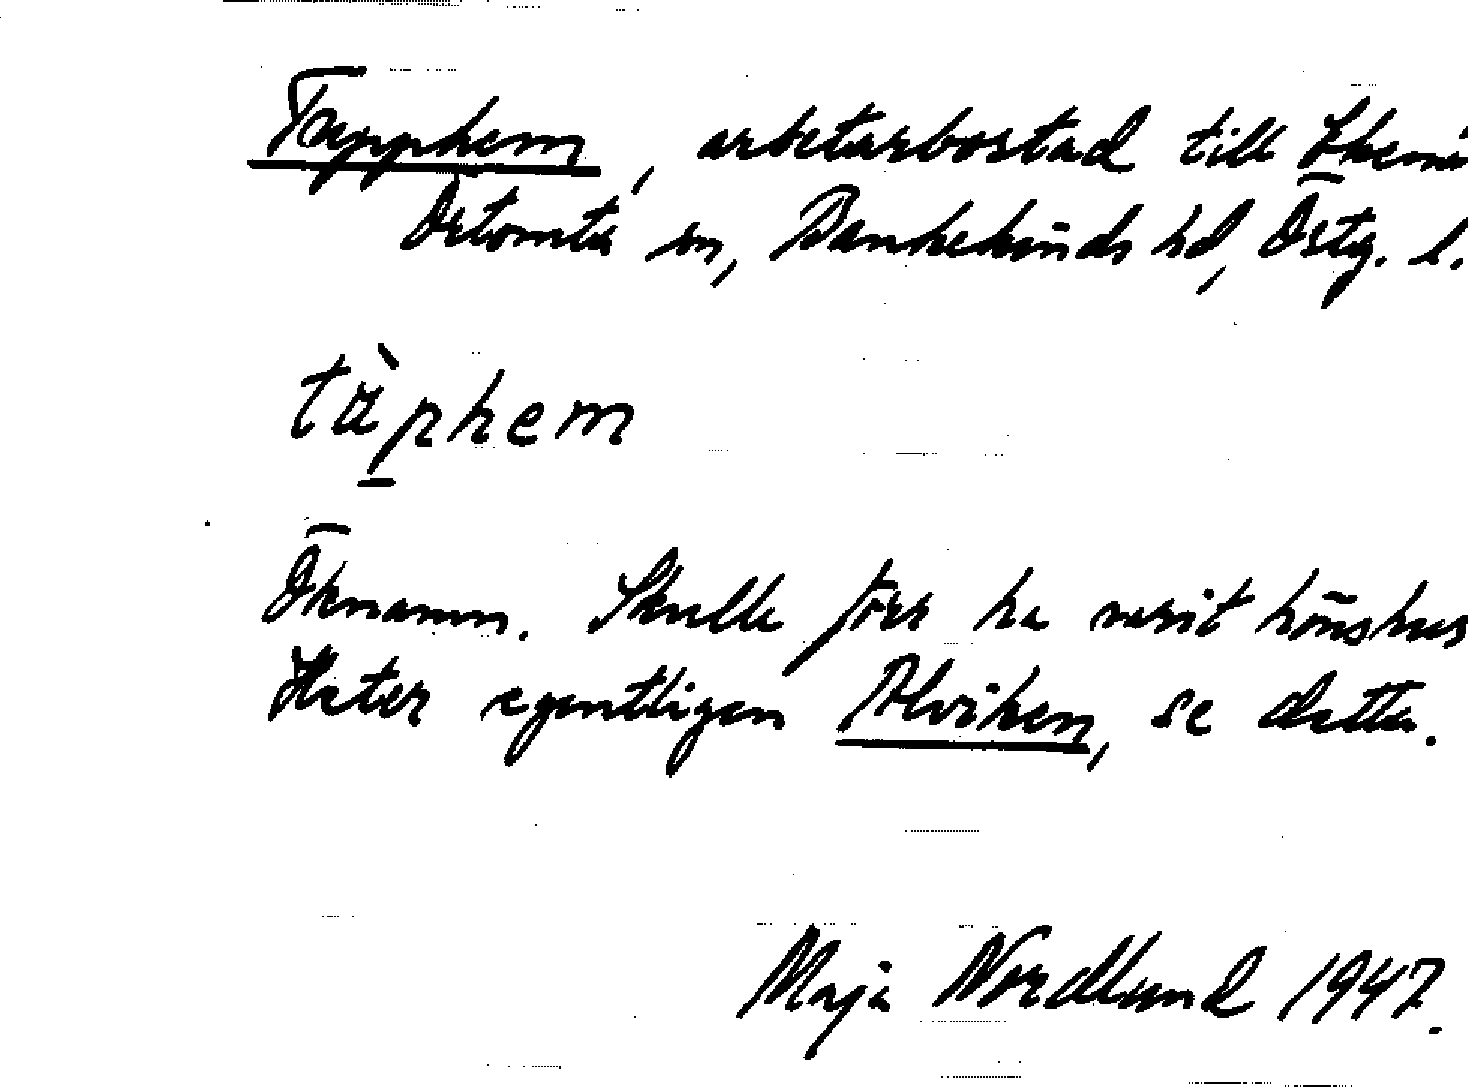 Tapphem, arbetarbostad till Ekenä
Örtomta sn, Bankekinds hd, Östg. l.
tàp̱hem
Öknamn. Skulle förr ha varit hönshus
Heter egentligen Alviken, se detta.
Maja Nordlund 1947.